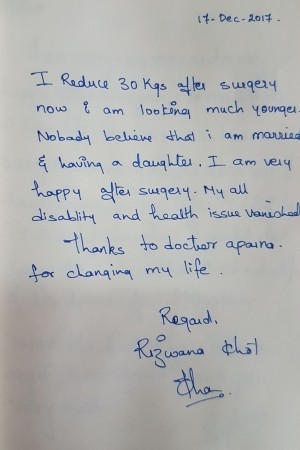 17-Dec-2017.
I Reduce 30 Kgs after surgery
now i am looking much younger.
Nobody believe that i am married
& having a daughter. I am very
happy after surgery. My all
disablity and health issue vanished
Thanks to doctor aparna.
for changing my life.
Regard,
Rizwana